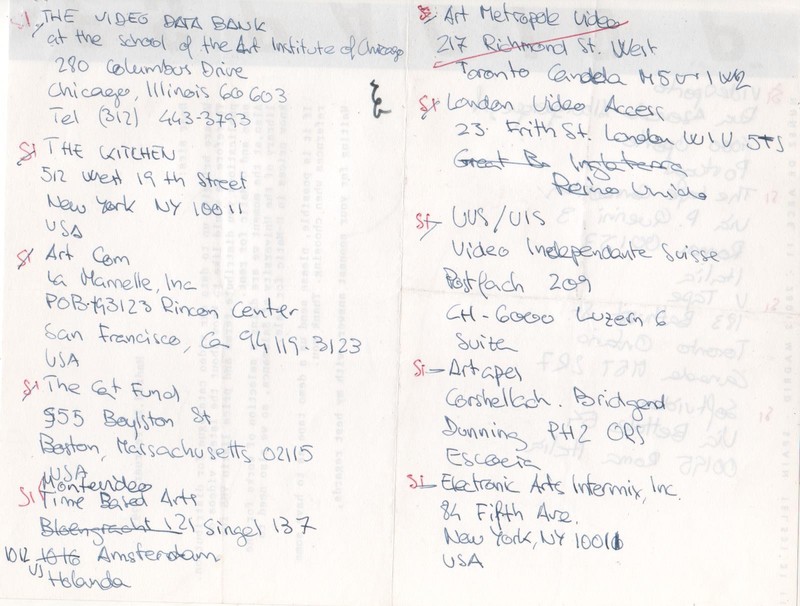 Si THE VIDEO DATA BANK
at the school of the Art Institute of Chicago
280 Columbus Drive
Chicago, Illinois 60603
Tel (312) 443-3793
Si THE KITCHEN
512 West 19 th Street
New York NY 10011
USA
Si Art Com
La Mamelle, Inc
POB 193123 Rincon Center
San Francisco, Ca 94119-3123
USA
Si The Cat Fund
555 Boylston St
Boston, Massachusetts 02115
USA
Montevideo
Si Time Based Arts
Bloemgracht 121 Singel 137
1012 1016 Amsterdam
VJ Holanda
Si Art Metropole Video
217 Richmond St. West
Toronto Canada M5V 1W2
Si London Video Access
23. Frith St. London W1V 5TS
Great Br Inglaterra
Reino Unido
Si VVS/UIS
Video Independante Suisse
Postfach 209
CH-6000 Luzern 6
Suiza
Si Artapes
Corshellach. Bridgend
Dunning PH2 0RS
Escocia
Si Electronic Arts Intermix, Inc.
84 Fifth Ave.
New York, NY 10011
USA